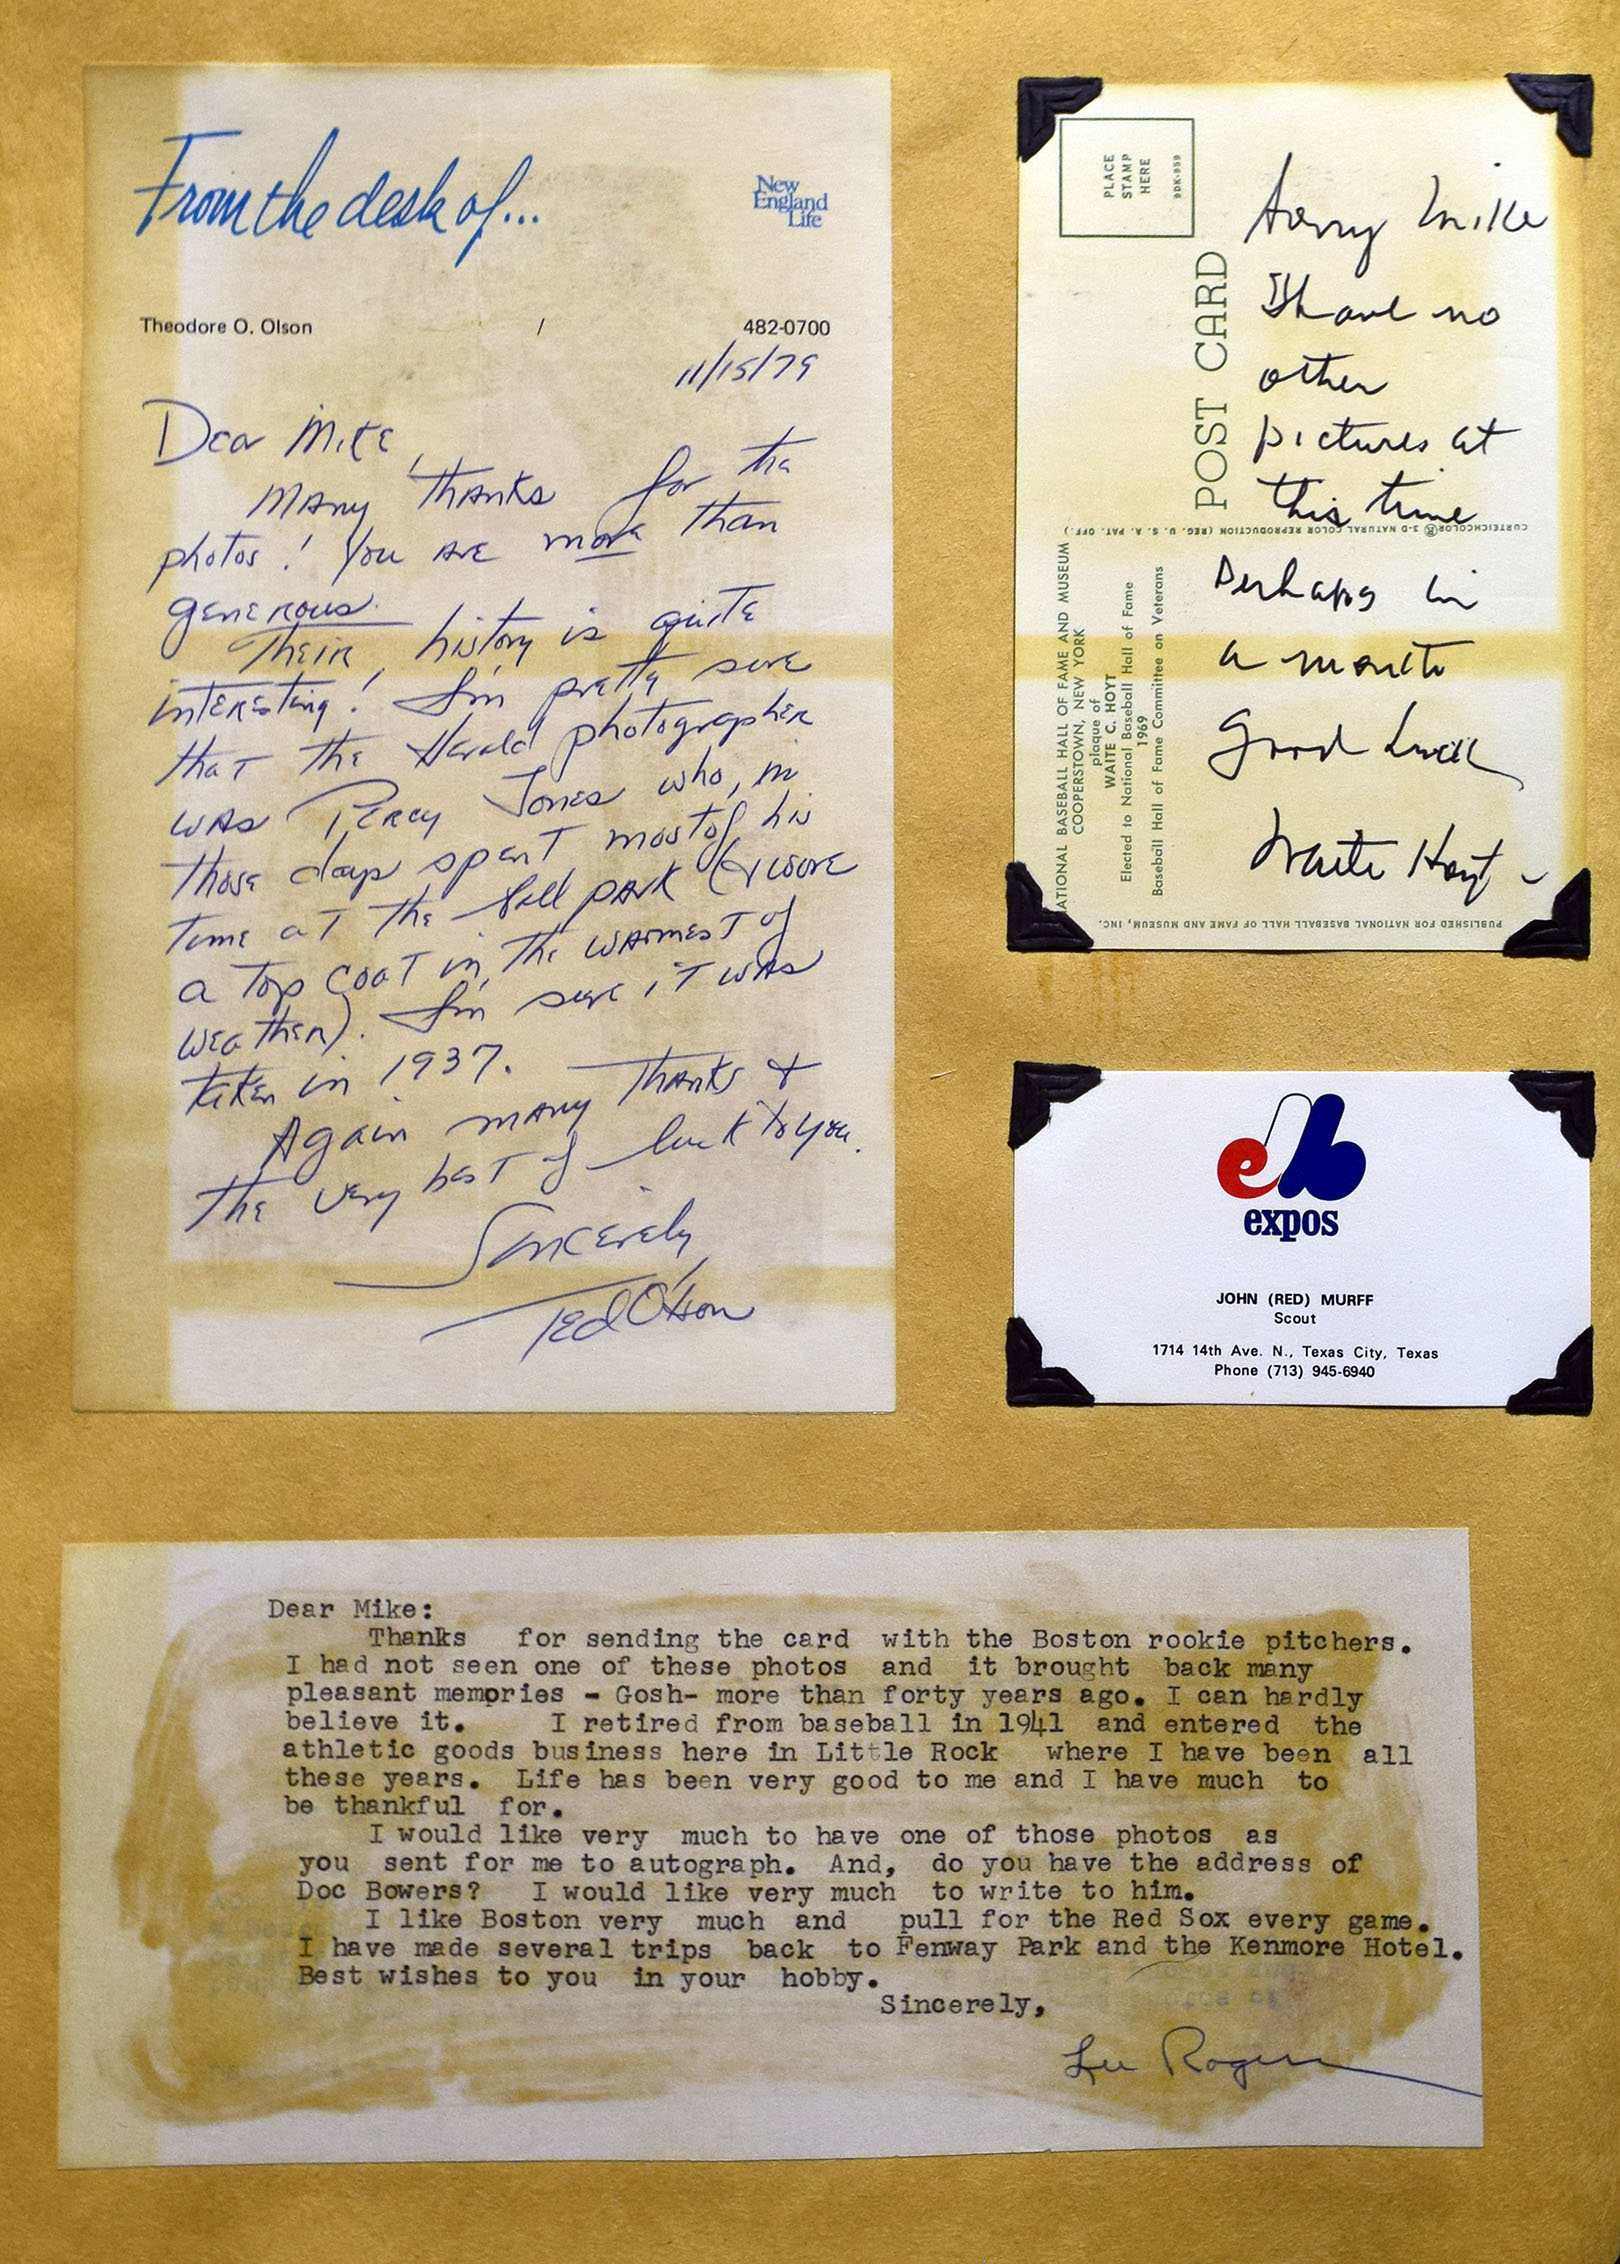 From the desk of...
New
England
Life
Theodore O. Olson / 482-0700
11/15/79
Dear Mike,
Many thanks for the
photos! You are more than
generous.
Their history is quite
interesting! I'm pretty sure
that the Herald photographer
was Percy Jones who, in
those days spent most of his
time at the ball park (& wore
a top coat in the warmest of
weather). I'm sure it was
taken in 1937.
Again many thanks &
the very best of luck to you.
Sincerely,
Ted Olson
PLACE
STAMP
HERE
BDK-959
POST CARD
Sorry Mike
I have no
other
pictures at
this time
Perhaps in
a month
Good Luck
Waite Hoyt
CURTEICHCOLOR® 3-D NATURAL COLOR REPRODUCTION (REG. U. S. A. PAT. OFF.)
NATIONAL BASEBALL HALL OF FAME AND MUSEUM
COOPERSTOWN, NEW YORK
plaque of
WAITE C. HOYT
Elected to National Baseball Hall of Fame
1969
Baseball Hall of Fame Committee on Veterans
PUBLISHED FOR NATIONAL BASEBALL HALL OF FAME AND MUSEUM, INC.
expos
JOHN (RED) MURFF
Scout
1714 14th Ave. N., Texas City, Texas
Phone (713) 945-6940
Dear Mike:
Thanks for sending the card with the Boston rookie pitchers.
I had not seen one of these photos and it brought back many
pleasant memories - Gosh- more than forty years ago. I can hardly
believe it. I retired from baseball in 1941 and entered the
athletic goods business here in Little Rock where I have been all
these years. Life has been very good to me and I have much to
be thankful for.
I would like very much to have one of those photos as
you sent for me to autograph. And, do you have the address of
Doc Bowers? I would like very much to write to him.
I like Boston very much and pull for the Red Sox every game.
I have made several trips back to Fenway Park and the Kenmore Hotel.
Best wishes to you in your hobby.
Sincerely,
Lee Rogers